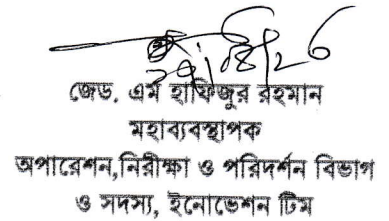 জেড. এম হাফিজুর রহমান
মহাব্যবস্থাপক
অপারেশন,নিরীক্ষা ও পরিদর্শন বিভাগ
ও সদস্য, ইনোভেশন টিম